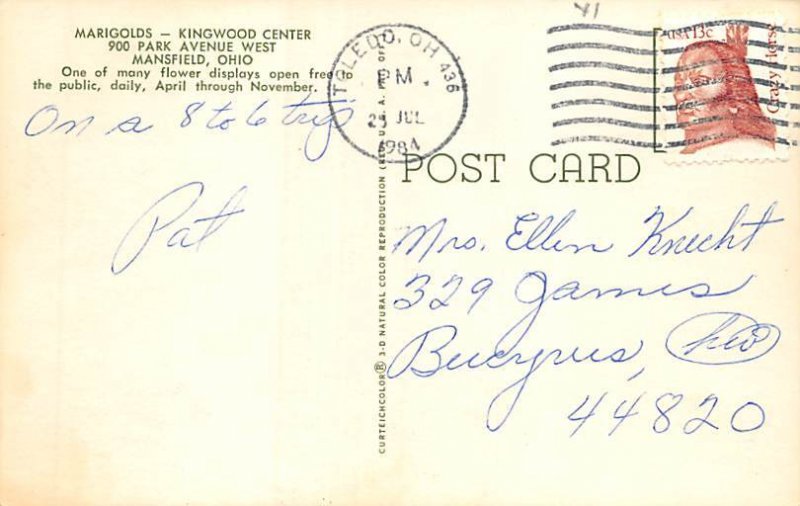 MARIGOLDS — KINGWOOD CENTER
900 PARK AVENUE WEST
MANSFIELD, OHIO
One of many flower displays open free to
the public, daily, April through November.
On a 8 to 6 trip
Pat
TOLEDO, OH 436
PM
1984
USA 13c
Crazy Horse
POST CARD
Mrs. Ellen Knecht
329 James
Bucyrus,
44820
CURTEICHCOLOR® 3-D NATURAL COLOR REPRODUCTION